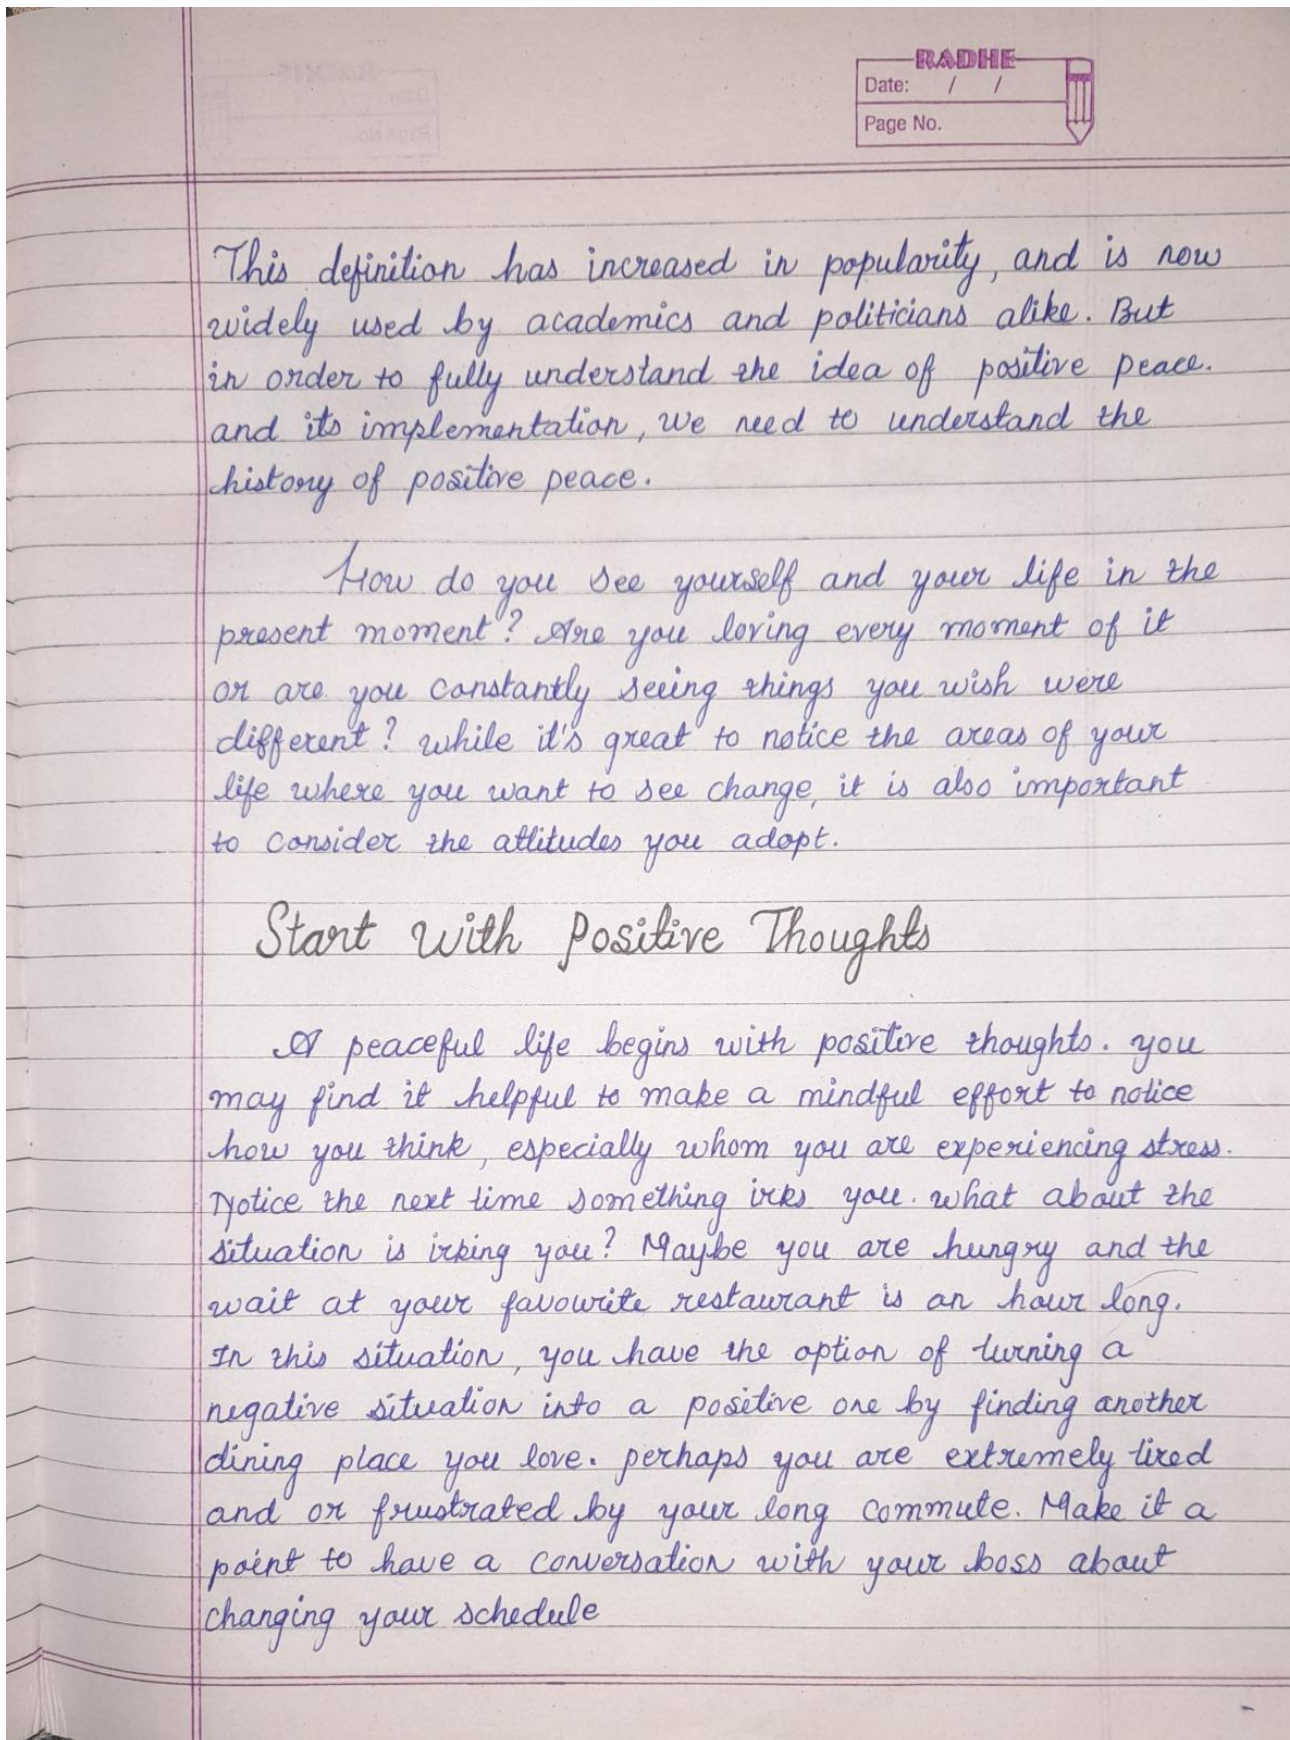 RADHE
Date: / /
Page No.
This definition has increased in popularity, and is now
widely used by academics and politicians alike. But
in order to fully understand the idea of positive peace.
and its implementation, we need to understand the
history of positive peace.
How do you see yourself and your life in the
present moment? Are you loving every moment of it
or are you constantly seeing things you wish were
different? while it's great to notice the areas of your
life where you want to see change, it is also important
to consider the attitudes you adopt.
Start with Positive Thoughts
A peaceful life begins with positive thoughts. you
may find it helpful to make a mindful effort to notice
how you think, especially whom you are experiencing stress.
Notice the next time something irks you. what about the
situation is irking you? Maybe you are hungry and the
wait at your favourite restaurant is an hour long.
In this situation, you have the option of turning a
negative situation into a positive one by finding another
dining place you love. perhaps you are extremely tired
and or frustrated by your long commute. Make it a
point to have a conversation with your boss about
changing your schedule